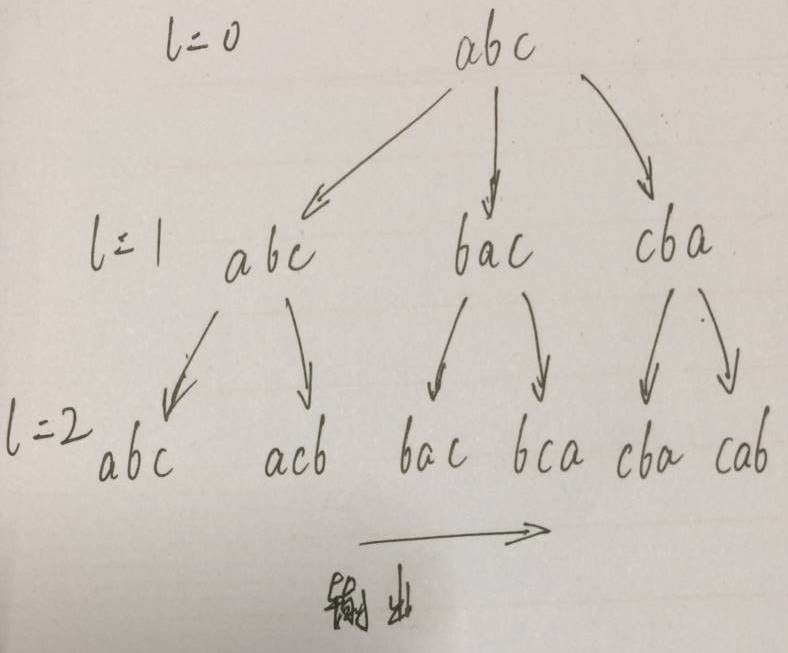 l=0 abc
l=1 abc bac cba
l=2 abc acb bac bca cba cab
输出